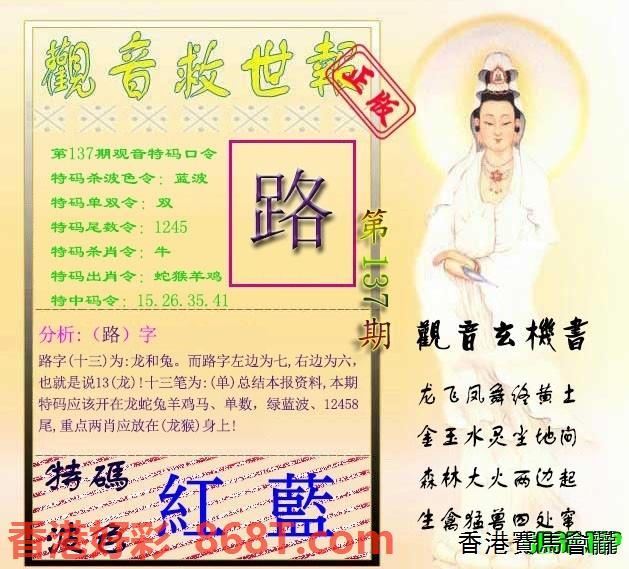 觀音救世報
正版
第137期观音特码口令
特码杀波色令：蓝波
特码单双令：双
特码尾数令：1245
特码杀肖令：牛
特码出肖令：蛇猴羊鸡
特中码令：15.26.35.41
路
第137期
分析:（路）字
路字(十三)为:龙和兔。而路字左边为七,右边为六,
也就是说13(龙)!十三笔为:(单)总结本报资料,本期
特码应该开在龙蛇兔羊鸡马、单数，绿蓝波、12458
尾,重点两肖应放在(龙猴)身上!
特碼
波色
紅 藍
觀音玄機書
龙飞凤舞终黄土
金玉水灵尘地间
森林大火两边起
生禽猛兽四处窜
香港好彩 868T.com
香港賽馬會